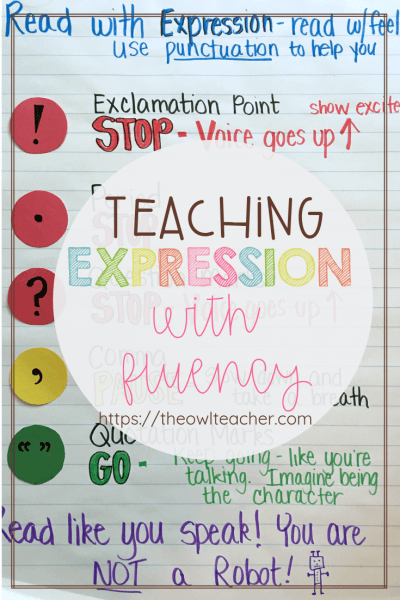 Read with Expression - read w/feel
use punctuation to help you
!
Exclamation Point show excite
STOP - Voice goes up ↑
.
TEACHING
EXPRESSION
with
fluency
https://theowlteacher.com
?
STOP - Voice goes up ↑
,
Comma
PAUSE and
take a breath
“ ”
Quotation Marks
GO - Keep going - like you're
talking. Imagine being
the character
Read like you speak! You are
NOT a Robot!